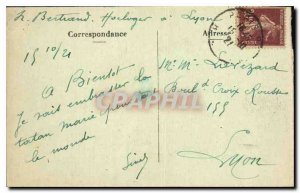 h. Bertrand Horloger à Lyon
Correspondance
Adresse
15 10/21
A Bientot
Je vais embrasser la
tatan marie pour tout
le monde
Mr Mme
Boul d Croix Rousse
155
Lyon